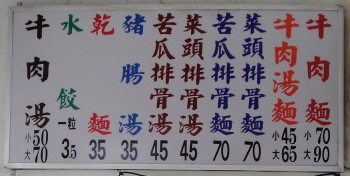 牛肉麵 小70 大90
牛肉湯麵 小45 大65
菜頭排骨麵 70
苦瓜排骨麵 70
菜頭排骨湯 45
苦瓜排骨湯 45
豬腸湯 35
乾麵 35
水餃 一粒 3.5
牛肉湯 小50 大70